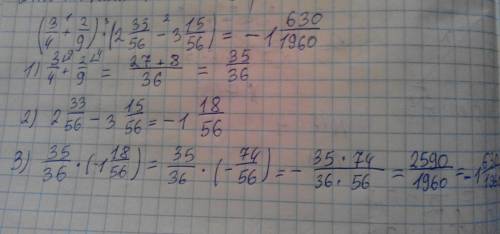 (3/4 + 2/9) · (2 33/56 - 3 15/56) = -1 630/1960
1) 3/4 + 2/9 = 27+8/36 = 35/36
2) 2 33/56 - 3 15/56 = -1 18/56
3) 35/36 · (-1 18/56) = 35/36 · (-74/56) = - 35·74/36·56 = 2590/1960 = -1